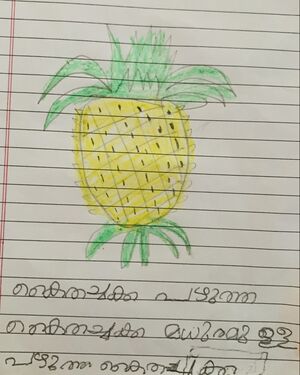 കൈതച്ചക്ക പഴുത്ത
കൈതച്ചക്ക മധുരമുള്ള
പഴുത്ത കൈതച്ചക്ക